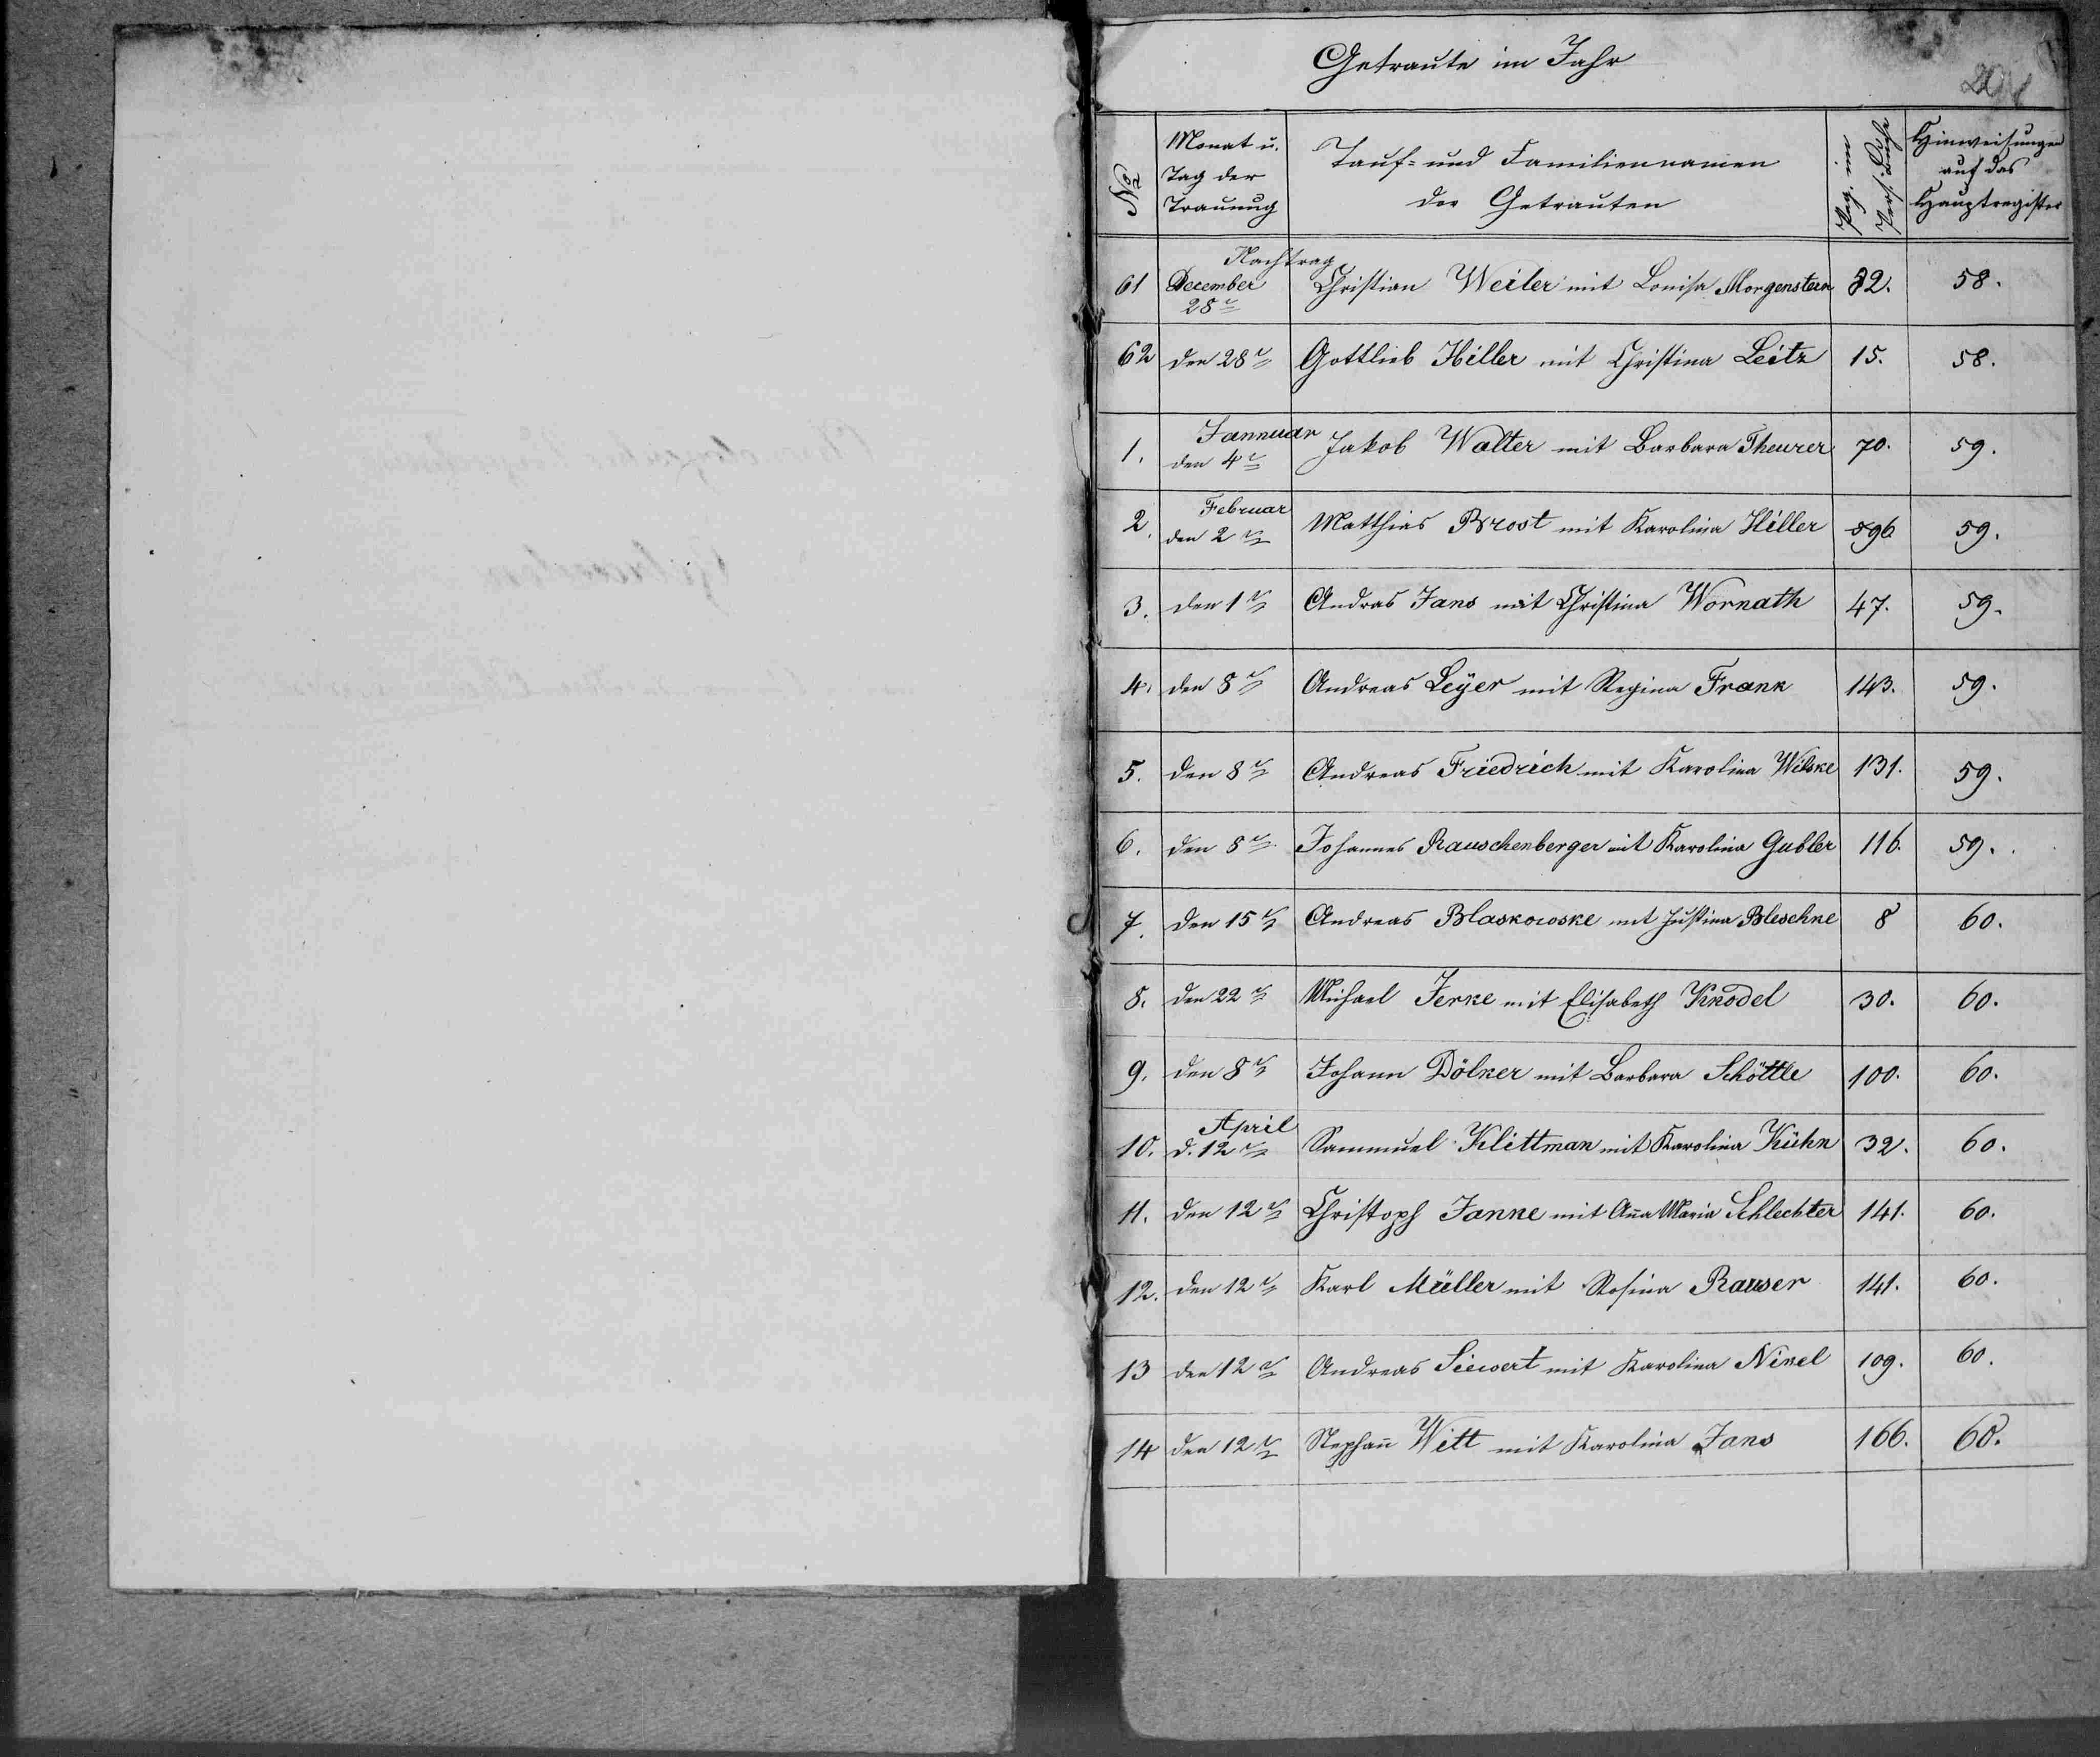 Getraute im Jahr
No
Monat u.
Tag der
Trauung
Tauf- und Familiennamen
der Getrauten
Pag. im
Pers. Buche
Hinweisungen
auf das
Hauptregister
Nachtrag
61 December 28ten Christian Weiler mit Louisa Morgenstern 32. 58.
62 den 28ten Gottlieb Hiller mit Christina Leitz 15. 58.
Jannuar
1. den 4ten Jakob Walter mit Barbara Theurer 70. 59.
Februar
2. den 2ten Matthias Brost mit Karolina Hiller 596 59.
3. den 1ten Andras Jans mit Christina Wornath 47. 59.
4. den 8ten Andreas Leÿer mit Regina Frank 143. 59.
5. den 8ten Andreas Friedrich mit Karolina Wilske 131. 59.
6. den 8ten Johannes Rauschenberger mit Karolina Gubler 116. 59.
7. den 15ten Andreas Blaskowske mit Justina Bleschke 8 60.
8. den 22ten Michael Jerke mit Elisabeth Knodel 30. 60.
9. den 8ten Johann Dölker mit Barbara Schöttle 100. 60.
April
10. d. 12ten Sammuel Klittman mit Karolina Kühn 32. 60.
11. den 12ten Christoph Janke mit Ana Maria Schlechter 141. 60.
12. den 12ten Karl Müller mit Rosina Rauser 141. 60.
13 den 12ten Andreas Siewert mit Karolina Nikel 109. 60.
14 den 12ten Stephan Witt mit Karolina Jans 166. 60.